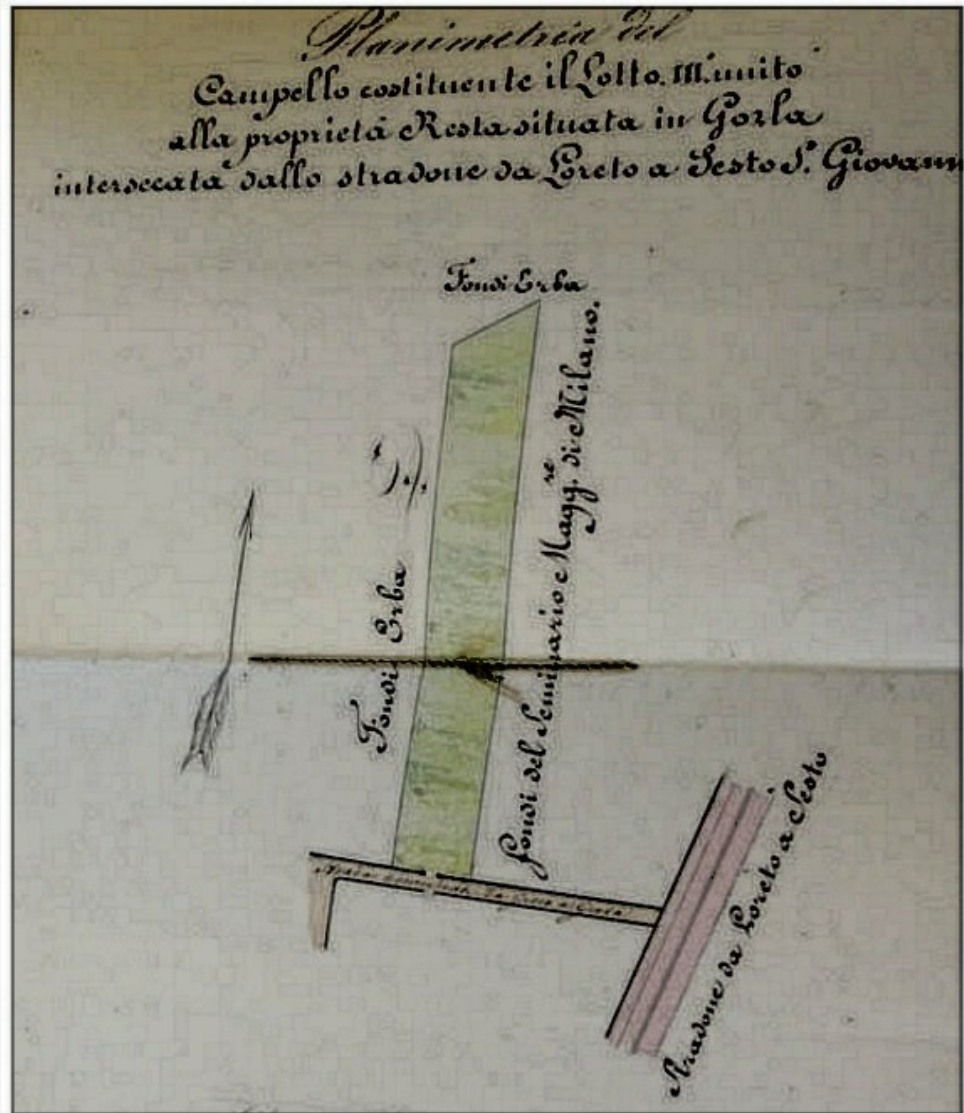 Planimetria del
Campello costituente il Lotto. III. unito
alla proprietà Resta situata in Gorla
intersecata dallo stradone da Loreto a Sesto S. Giovann
Fondi Erba
Fondi Erba
fondi del Seminario Magg.re di Milano.
Strada da a
Stradone da Loreto a Sesto